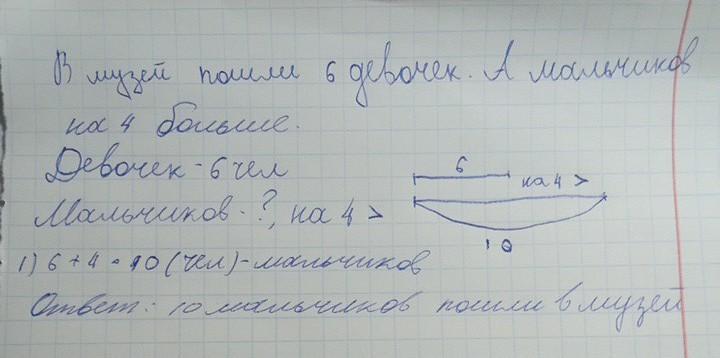 В музей пошли 6 девочек. А мальчиков
на 4 больше.
Девочек - 6 чел
6
на 4 >
Мальчиков - ?, на 4 >
10
1) 6 + 4 = 10 (чел) - мальчиков
Ответ: 10 мальчиков пошли в музей